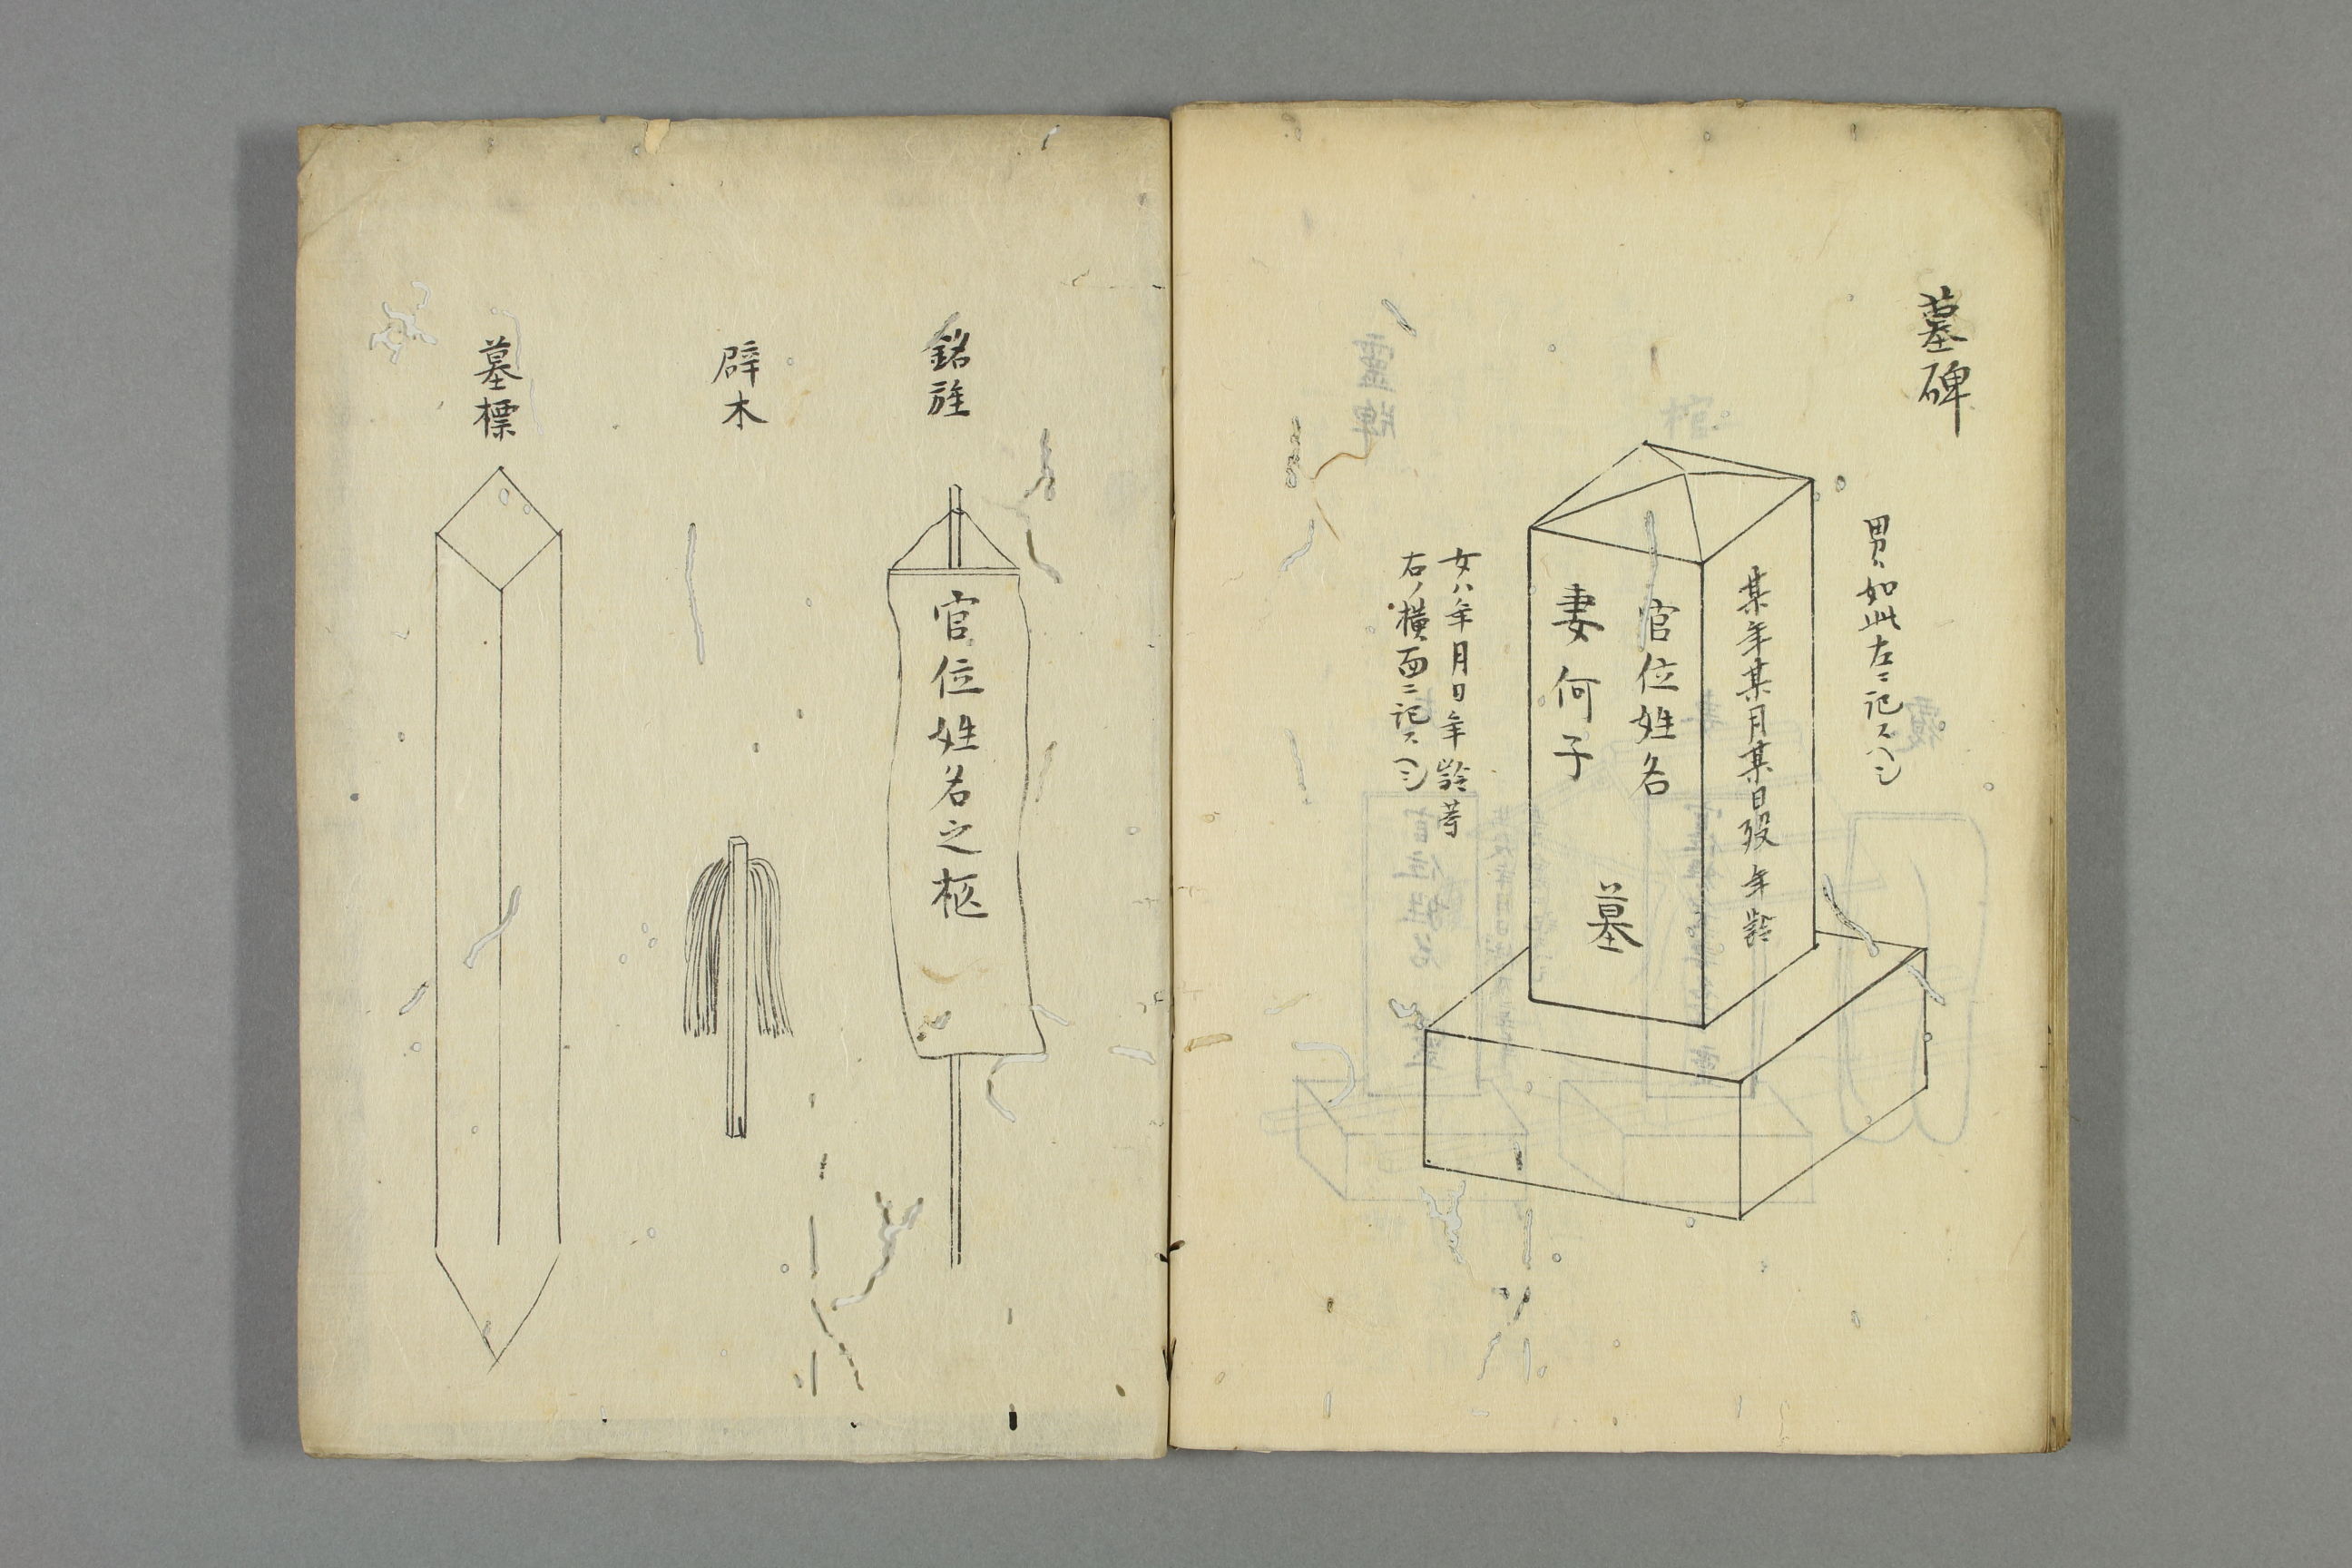 墓碑
男ハ如此左ニ記スヘシ
某年某月某日歿年齢
官位姓名
妻何子
墓
女ハ年月日年齢等
右ノ横面ニ記スヘシ
銘旌
官位姓名之柩
辟木
墓標